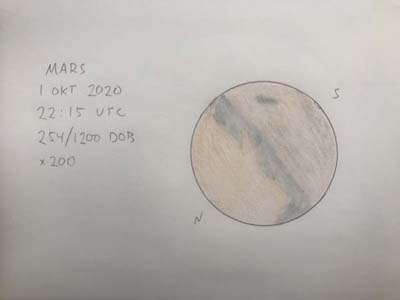 MARS
1 OKT 2020
22:15 UTC
254/1200 DOB
×200
S
N